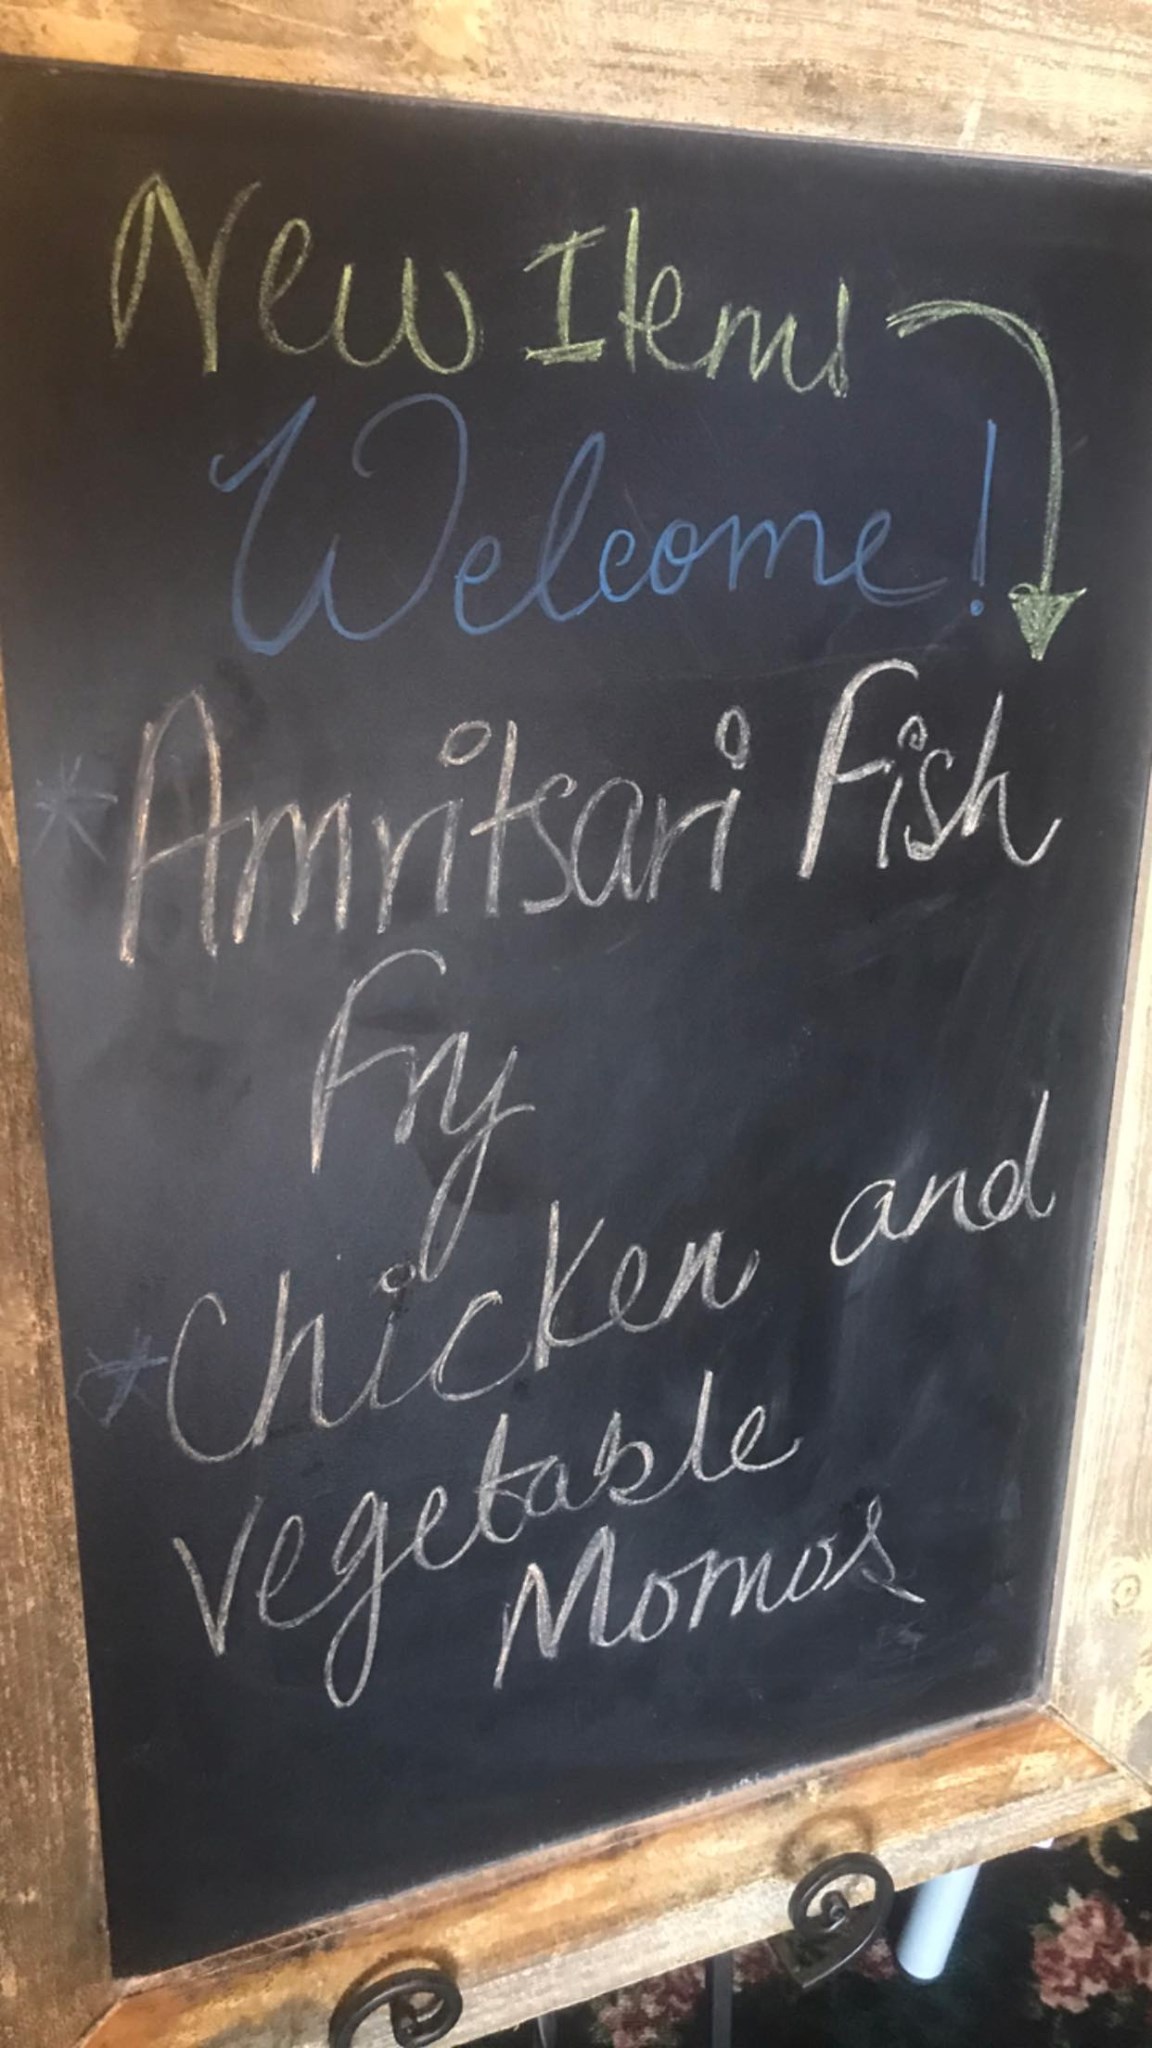 New Item!
Welcome!
* Amritsari Fish
Fry
* Chicken and
Vegetable
Momos